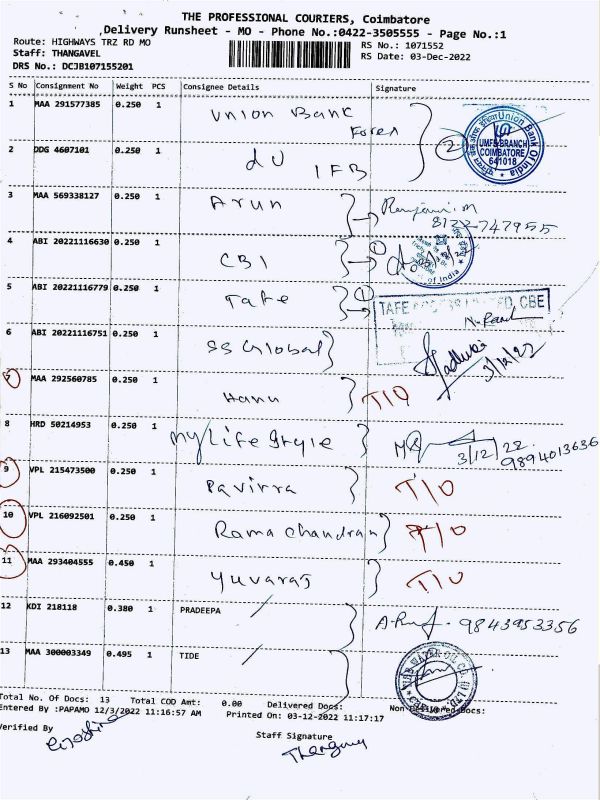 THE PROFESSIONAL COURIERS, Coimbatore
Delivery Runsheet - MO - Phone No.:0422-3505555 - Page No.:1
Route: HIGHWAYS TRZ RD MO
RS No.: 1071552
Staff: THANGAVEL
RS Date: 03-Dec-2022
DRS No.: DCJB107155201
S No Consignment No Weight PCS Consignee Details Signature
1 MAA 291577385 0.250 1 Union Bank Forex
Union Bank Of India
UMFB BRANCH
COIMBATORE
641018
2 DDG 4607101 0.250 1 du IFB 2
3 MAA 569338127 0.250 1 Arun
8122-747955
4 ABI 20221116630 0.250 1 CBI 1
of India
5 ABI 20221116779 0.250 1 Tafe 1
TAFE CBE
6 ABI 20221116751 0.250 1 SS Global
3/12/22
7 MAA 292560785 0.250 1 Hanu T/O
8 HRD 50214953 0.250 1 My Life Style
3/12/22
9894013636
9 VPL 215473500 0.250 1 Pavirra T/O
10 VPL 216092501 0.250 1 Rama chandran T/O
11 MAA 293404555 0.450 1 Yuvaraj T/O
12 KDI 218118 0.380 1 PRADEEPA 9843953356
13 MAA 300003349 0.495 1 TIDE
Total No. Of Docs: 13 Total COD Amt: 0.00 Delivered Docs: Non-Delivered Docs:
Entered By :PAPAMO 12/3/2022 11:16:57 AM Printed On: 03-12-2022 11:17:17
Verified By
Staff Signature